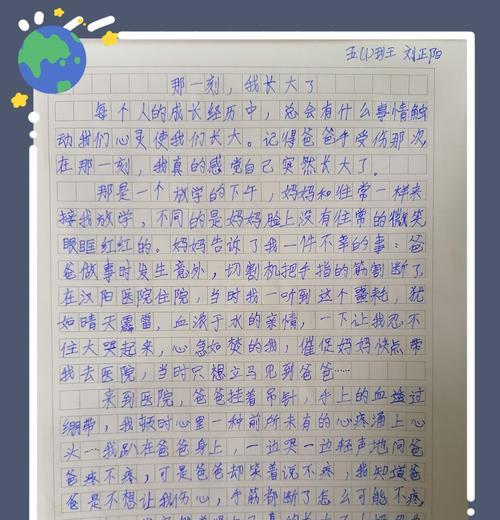 五(1)班 刘正阳
那一刻，我长大了
每个人的成长经历中，总会有什么事情触
动我们心灵使我们长大。记得爸爸手受伤那次
在那一刻，我真的感觉自己突然长大了。
那是一个放学的下午，妈妈和往常一样来
接我放学，不同的是妈妈脸上没有往常的微笑
眼眶红红的。妈妈告诉了我一件不幸的事：爸
爸做事时发生意外，切割机把手指的筋割断了
在汉阳医院住院，当时我一听到这个噩耗，犹
如晴天霹雷，血浓于水的亲情，一下让我忍不
住大哭起来，心急如焚的我，催促妈妈快点带
我去医院，当时只想立马见到爸爸……
来到医院，爸爸挂着吊针，手上的血溢过
绷带，我顿时心里一种前所未有的心疼涌上心
头…我趴在爸爸身上，一边哭一边轻声地问爸
爸疼不疼，可是爸爸却笑着说不疼，我知道爸
爸是不想让我伤心，手筋都断了怎么可能不疼，